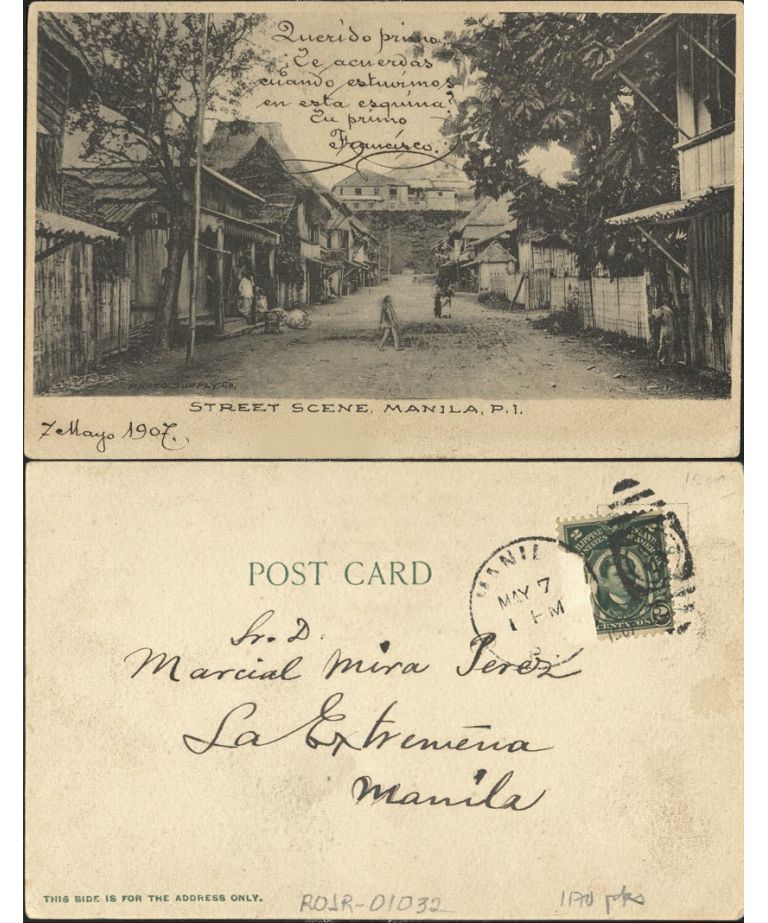 Querido primo
¡Te acuerdas
cuando estuvimos
en esta esquina?
Tu primo
Francisco.
PHOTO SUPPLY CO.
STREET SCENE, MANILA, P.I.
7 Mayo 1907.
POST CARD
MANIL
MAY 7
1 PM
P.
2 2
CENTAVOS
Sr. D.
Marcial Mira Perez
La Extremeña
Manila
THIS SIDE IS FOR THE ADDRESS ONLY.
ROJR-01032